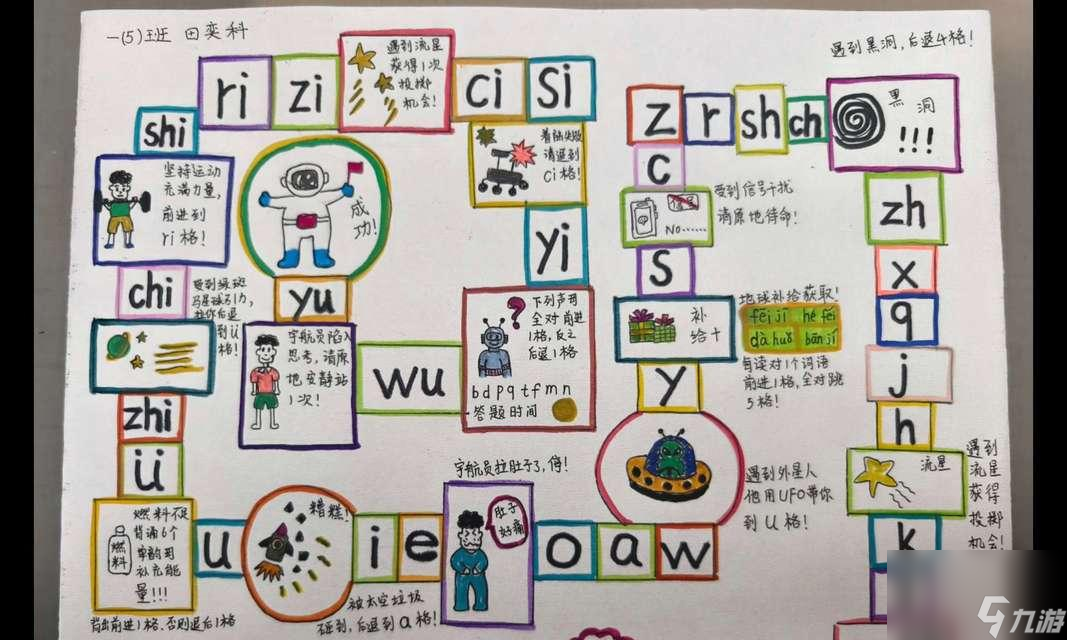 一(5)班 田奕科
遇到黑洞,后退4格!
ri
zi
遇到流星
获得1次
投掷
机会!
ci
si
shi
坚持运动
充满力量,
前进到
ri格!
成
功!
着陆失败
请退到
ci格!
yi
chi
yu
宇航员陷入
思考,请原
地安静站
1次!
wu
下列声母
全对前进
1格,反之
后退1格
b d p q t f m n
答题时间
到ü
格!
zhi
ü
燃料不足
背诵6个
单韵母
补充能
量!!!
燃料
背出前进1格,否则退后1格
u
糟糕!
i
e
被太空垃圾
砸到,后退到a格!
宇航员拉肚子了,停!
肚子
好痛
o
a
w
z
r
sh
ch
黑洞
!!!
c
受到信号干扰
请原地待命!
NO······
s
补
给+
地球补给获取!
fēi jī hé fēi
dà huǒ bān jī
每读对1个词语
前进1格,全对跳
5格!
y
遇到外星人
他用UFO带你
到u格!
zh
x
q
j
h
流星
遇到
流星
获得
投掷
机会!
k
九游